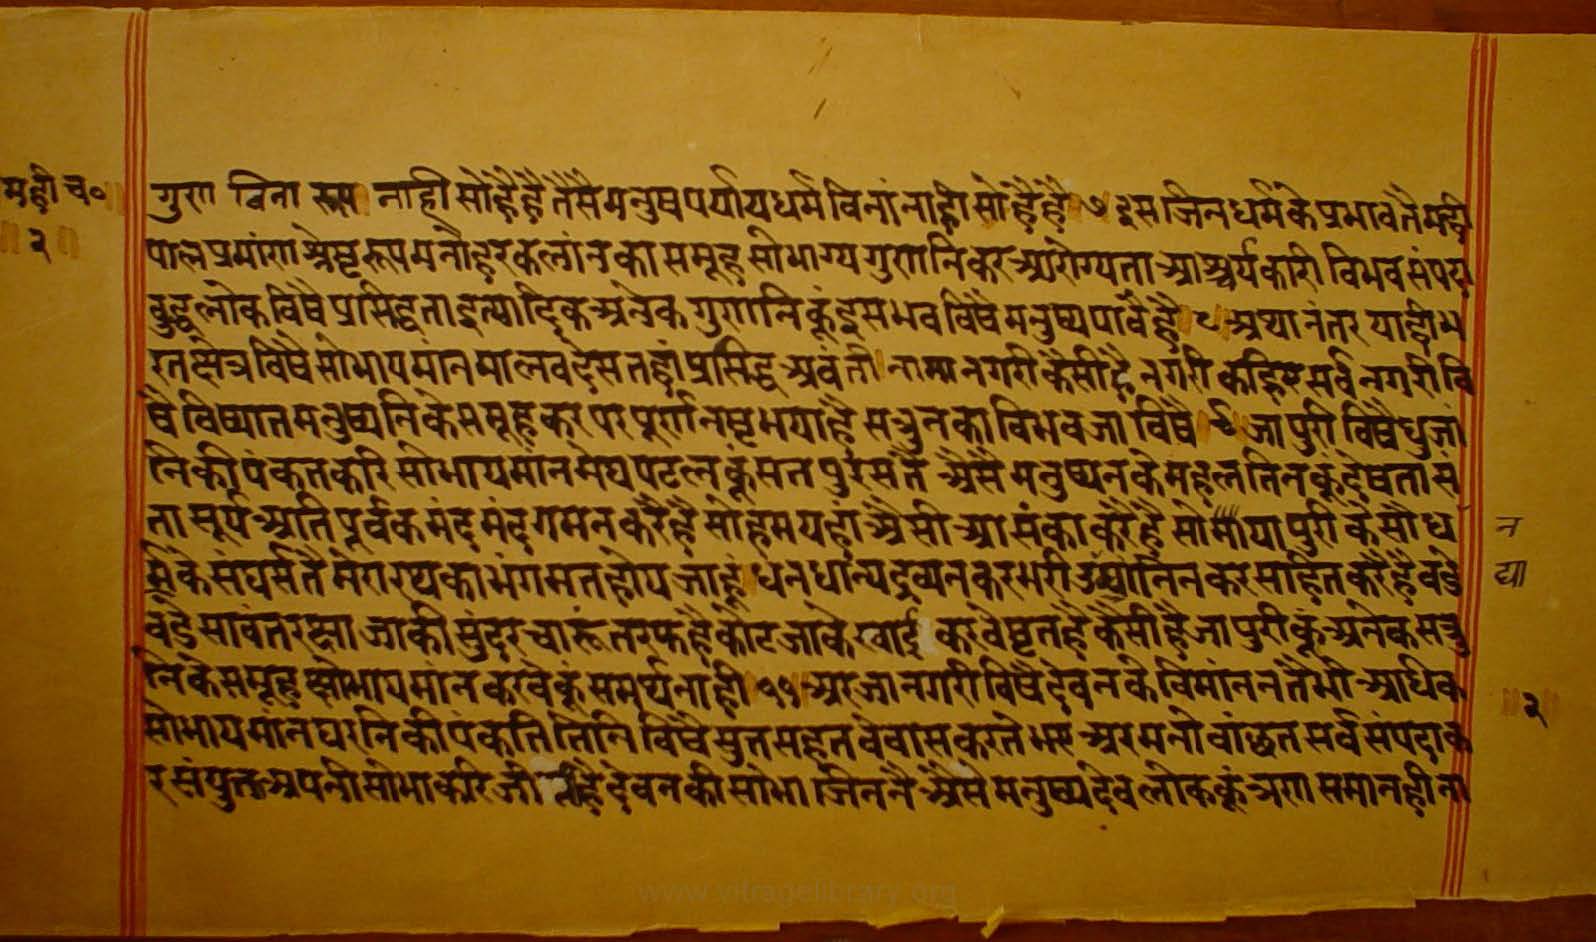 महीच० गुण विना रूप नाही सोहैहै तैसै मनुष पर्याय धर्म विनां नाही सोहैहै ७ इस जिनधर्मके प्रभावतै मही
२ पाल प्रमांण श्रेष्ट रूप मनौहर कलांनका समूह सोभाग्य गुणनिकर अरोग्यता आश्चर्यकारी विभव संपदा
लोकविषै प्रसिद्धता इत्यादिक अनेक गुणनिकूं इस भवविषै मनुष्य पावैहै ८ अथानंतर याही भ
रतक्षेत्रविषै सोभायमांन मालवदेस तहां प्रसिद्ध अवंती नामा नगरी कैसी है नगरी कहिए सर्व नगरीवि
षै विष्यात मनुष्यनिके समूह कर परपूर्ण नष्ट भयाहै सत्रुनका विभव जा विषै ९ जा पुरीविषै धुजां
निकी पंकत करि सोभायमांन मेघपटलकूं सत पुरसतै अैसै मनुष्यनके महल तिनकूं देषता सं
ता सूर्य अति पूर्वक मंद मंद गमन करैहै सो हम यहां अैसी आसंका करैहै सो या पुरीके सौध न
मिके संघर्सतै मेरा रथका भंग मत होय जाहू धन धान्य द्रव्यनकर भरी उद्यानिनकर सहित करैहै वडे द्या
वडे सावंत रक्षा जाकी सुंदर चारूं तरफहै कोट जाके खाई कर वेष्टतहै कैसीहै जा पुरीकूं अनेक सत्रु
निके समूह क्षोभायमांन करवेकूं समर्थ नाही ११ अर जा नगरीविषै देवनके विमांननतै भी अधिक २
सोभायमांन घरनिकी पंकति तिनिविषै महत वे वास करते भए अर मनोवांछत सर्व संपदाक
र संयुक्त अपनी सोभा करि जीतीहै देवनकी सोभा जिननै अैसै मनुष्य देवलोककूं त्रण समान ही ना